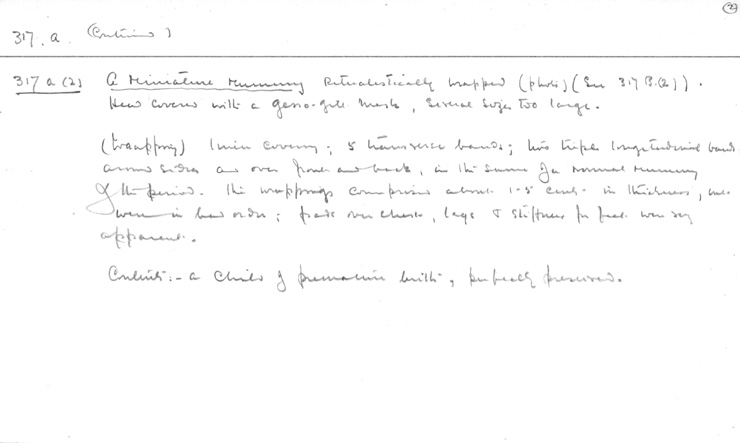 (2)
317. a (Continued)
317 a (2) A Miniature Mummy Ritualistically wrapped (photo) (See 317 B.(2)).
Head covered with a gesso-gilt mask, several sizes too large.
(wrapping) 1 main covering; 5 transverse bands; two triple longitudinal bands
around sides and over front and back, in the manner of a normal mummy
of the period. The wrappings comprised about 1.5 cents in thickness, and
were in bad order; pads over chest, legs & stiffness for feet were very
apparent.
Contents:- a child of premature birth, perfectly preserved.